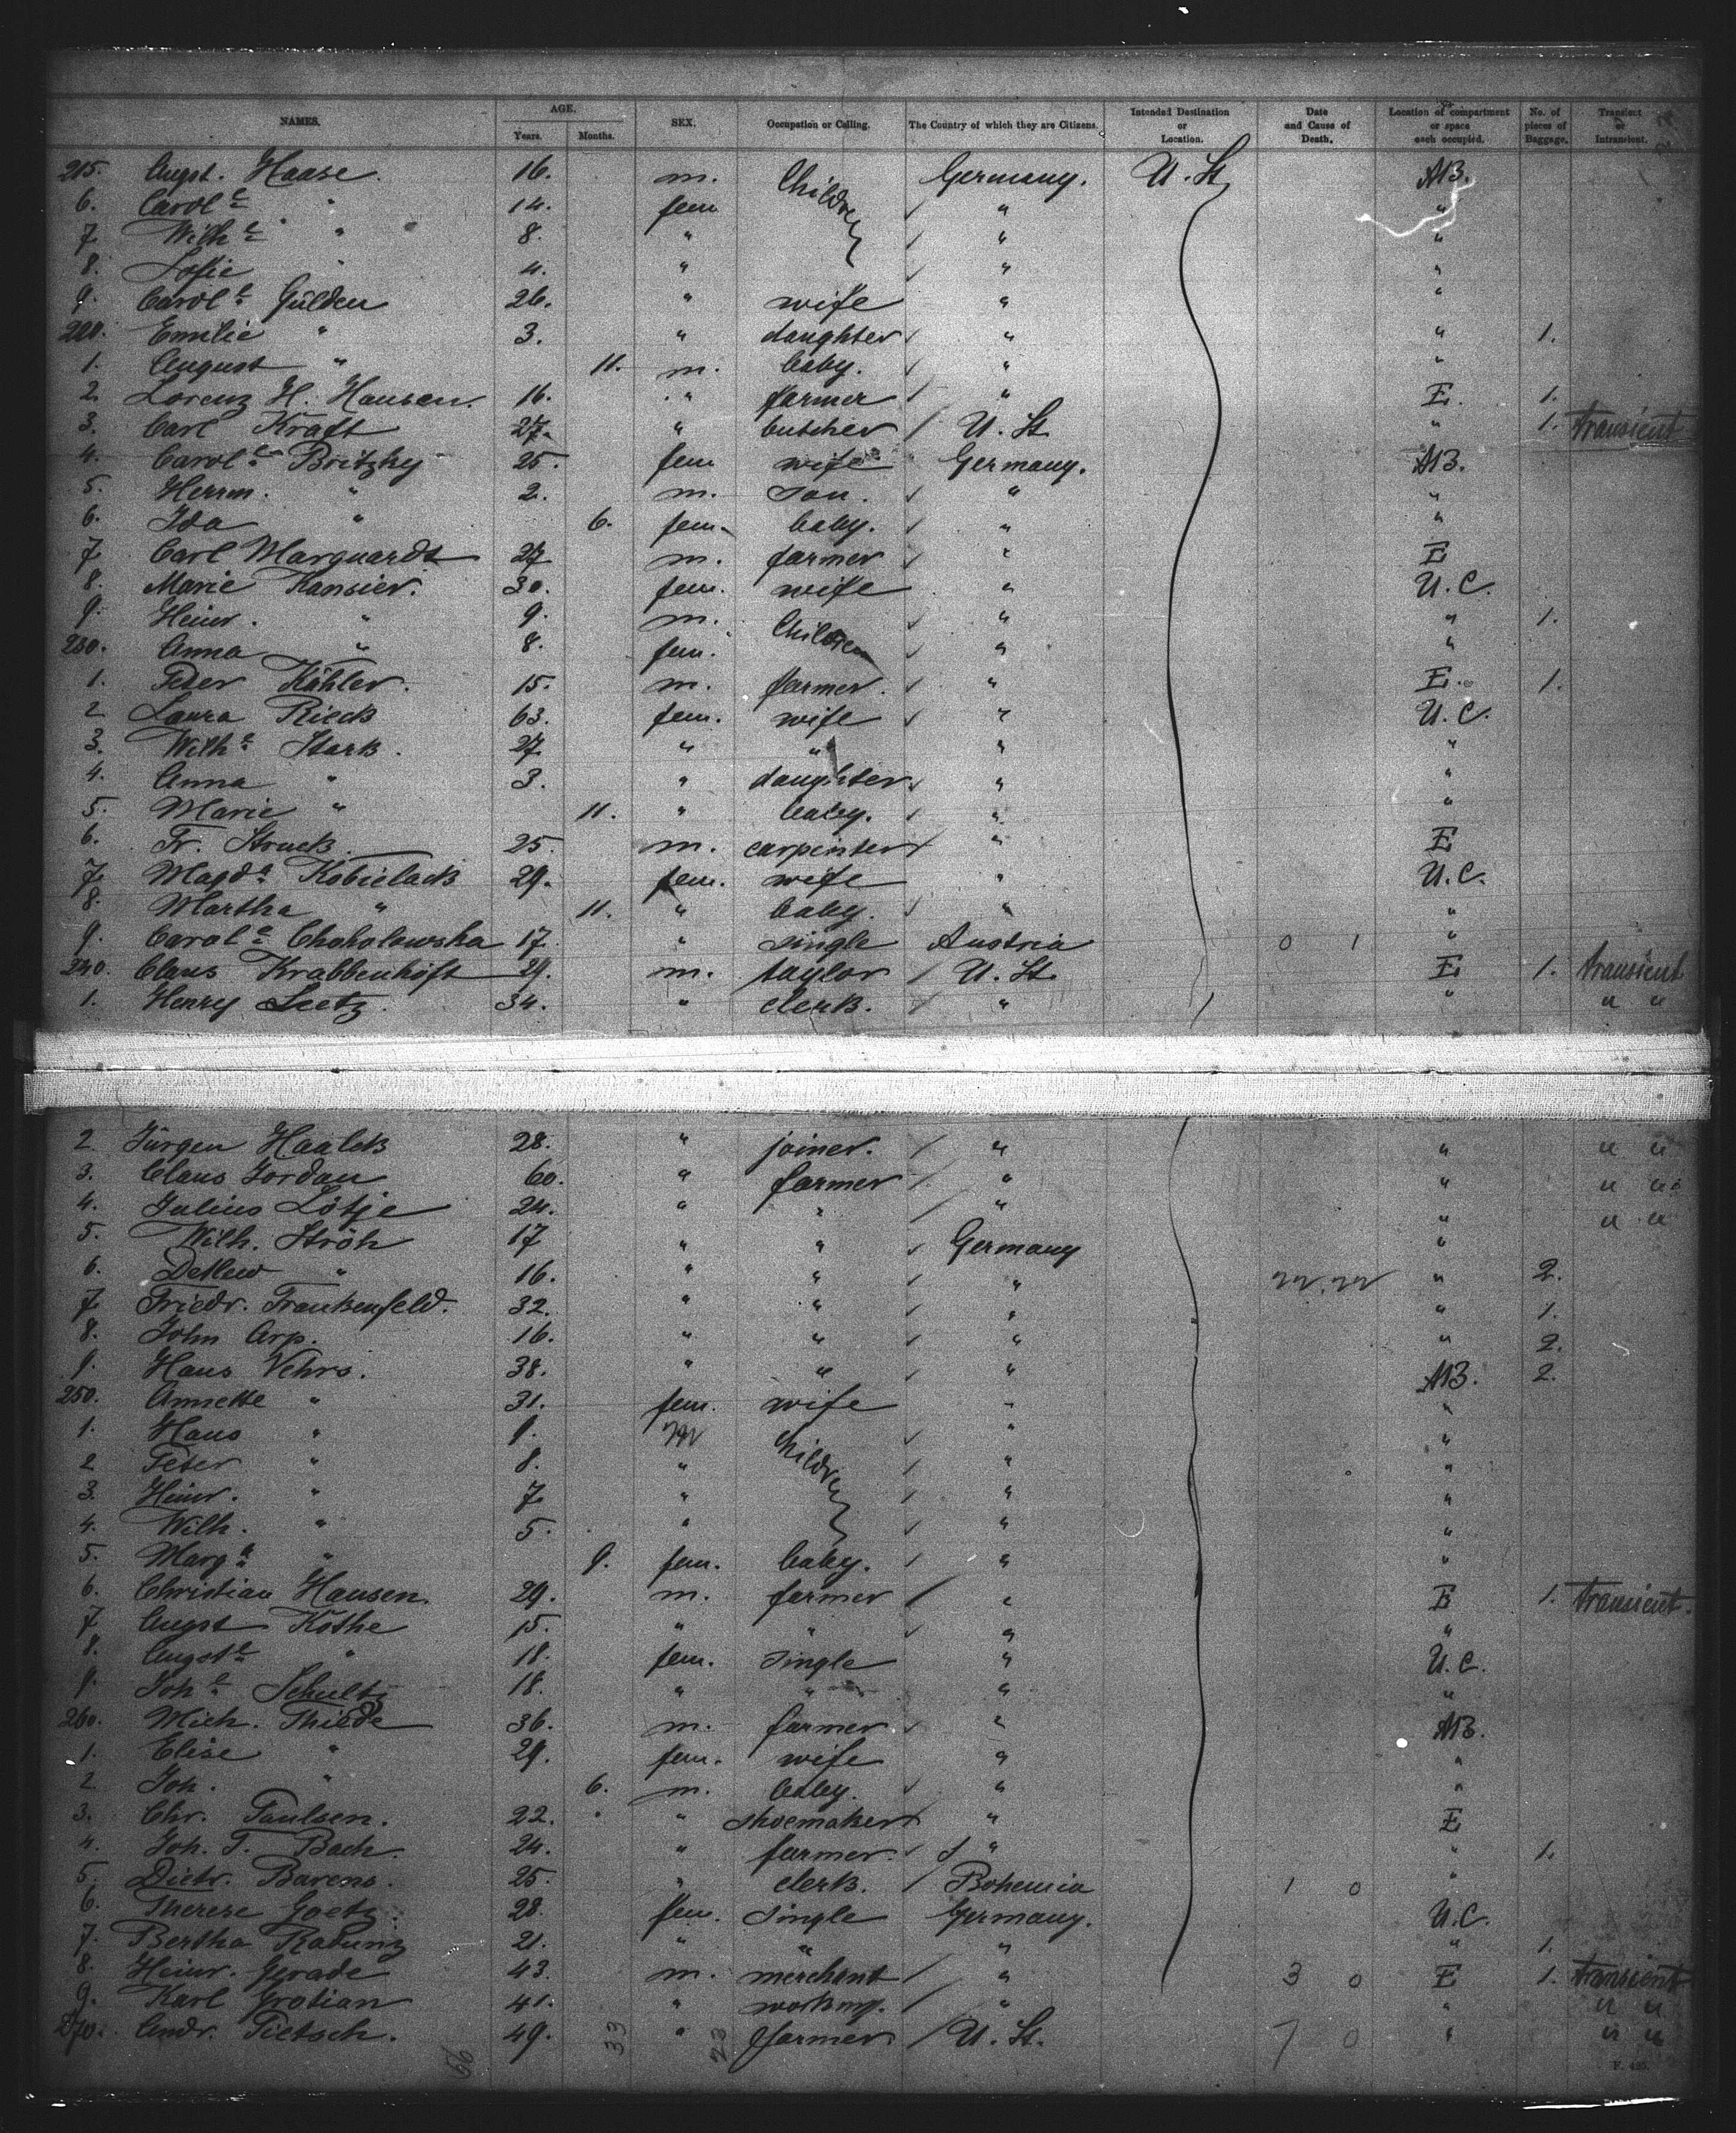 NAMES. AGE. Years. Months. SEX. Occupation or Calling. The Country of which they are Citizens. Intended Destination or Location. Date and Cause of Death. Location of compartment or space each occupied. No. of pieces of Baggage. Transient or Intransient.
215. Augst. Haase. 16. m. Children Germany. U. St. A13.
6. Carole " 14. fem " "
7 Wilhe " 8. " " "
8. Sofie " 4. " " "
9. Carole Gülden 26. " wife " "
220. Emilie " 3. " daughter " " 1.
1. August " 11. m. baby. " "
2. Lorenz H. Hansen. 16. " farmer " E. 1.
3. Carl Kraft 27. " butcher U. St. " 1. transient
4. Carole Britzky 25. fem wife Germany. A13.
5. Herrm. " 2. m. son. " "
6. Ida " 6. fem. baby. " "
7 Carl Marquardt 27 m. farmer " E
8. Marie Kansier. 30. fem. wife " U. C.
9. Heinr. " 9. m. Children " " 1.
230. Anna " 8. fem. " "
1. Peter Köhler. 15. m. farmer. " E. 1.
2 Laura Rieck 63. fem. wife " U. C.
3. Wilhe Stark. 27 " " " "
4. Anna " 3. " daughter " "
5. Marie " 11. " baby. " "
6. Fr. Struck. 25. m. carpenter " E
7. Magda Kobielack 29. fem. wife " U. C.
8. Martha " 11. " baby. " "
9. Carole Chokolowska 17. " single Austria 0 1 "
240. Claus Krabbenhöft 29. m. taylor U. St. E 1. transient
1. Henry Seetz. 34. " clerk. " " " "
2 Jürgen Haalck 28. " joiner. " " " "
3. Claus Jordan 60. " farmer " " " "
4. Julius Lötje 24. " " " " " "
5. Wilh. Ströh 17 " " Germany "
6. Detlew " 16. " " " " 2.
7 Friedr. Frankenfeld. 32. " " " " 1.
8. John Arp. 16. " " " " 2.
9. Hans Vehrs. 38. " " " A13. 2.
250. Annette " 31. fem. wife " "
1. Hans " 9. M Children " "
2 Peter " 8. " " "
3. Heinr. " 7 " " "
4. Wilh. " 5. " " "
5. Marga " 9. fem. baby. " "
6. Christian Hansen. 29. m. farmer " E 1. transient.
7 Augst Köthe 15. " " " "
8. Auguste " 18. fem. single " U. C.
9. Johe Schultz 18. " " " "
260. Mich. Thiede 36. m. farmer " A13.
1. Elise " 29. fem. wife " "
2. Joh. " 6. m. baby. " "
3. Chr. Paulsen. 22. " shoemaker " E
4. Joh. T. Bach. 24. " farmer. " " 1.
5. Dietr. Barens. 25. " clerk. Bohemia 1 0 "
6. Therese Goetz. 28. fem. single Germany. U. C.
7. Bertha Radunz 21. " " " " 1.
8. Heinr. Gerade 43. m. merchant " 3 0 E 1. transient
9. Karl Grotian 41. " workmg. " " " "
270. Andr. Pietsch. 49. " farmer U. St. 7 0 " " "
56 33 23